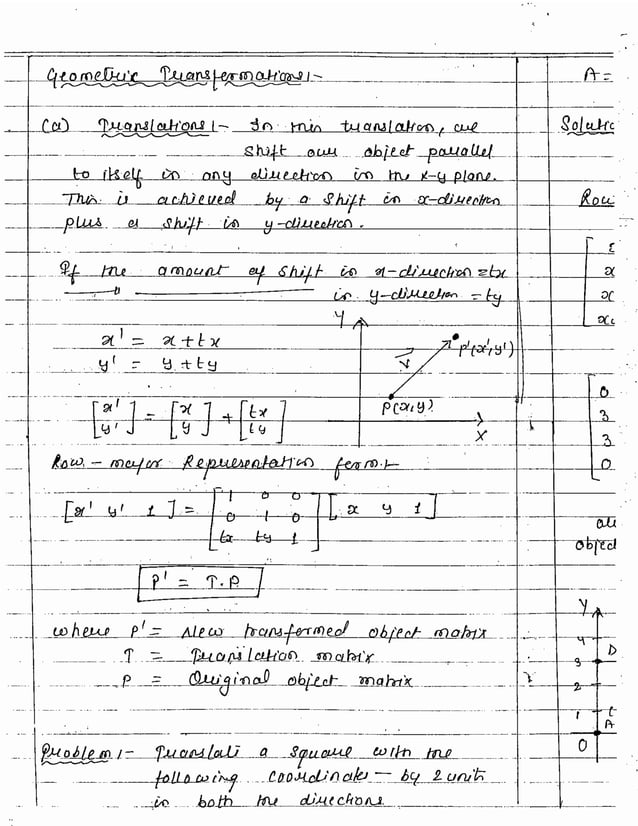 Geometric Transformations:-
(a) Translations:- In this translation, we
shift our object parallel
to itself in any direction in the x-y plane.
This is achieved by a shift in x-direction
plus a shift in y-direction.
If the amount of shift in x-direction = tx
in y-direction = ty
x' = x + tx
y' = y + ty
Y
P'(x', y')
V
P(x,y)
X
[x' y'] = [x y] + [tx ty]
Row-major Representation form:-
[x' y' 1] = [1 0 0
0 1 0
tx ty 1] [x y 1]
P' = T.P
where P' = New transformed object matrix
T = Translation matrix
P = Original object matrix
Problem:- Translate a square with the
following coordinate - by 2 unit
in both the directions
A =
Solutio
Row
x
x
0
3
3
0
object
Y
4
3 D
2
1
A
0